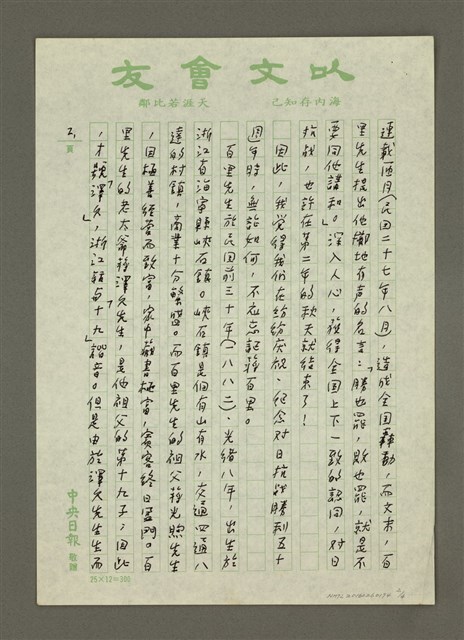 以文會友
海內存知己　天涯若比鄰
連載兩月（民國二十七年八月），造成全國轟動，而文末，百
里先生提出他擲地有聲的名言：「勝也罷，敗也罷，就是不
要同他講和。」深入人心，獲得全國上下一致的認同，對日
抗戰，也許在第二年的秋天就結束了！
因此，我覺得我們在紛紛慶祝、紀念對日抗戰勝利五十
週年時，無論如何，不應忘記蔣百里。
百里先生於民國前三十年（一八八二）、光緒八年，出生於
浙江省海寧縣峽石鎮。峽石鎮是個有山有水，交通四通八
達的村鎮，商業十分發盛。而百里先生的祖父蔣光煦先生
，因極善經營而致富，家中藏書極富，賓客終日盈門。百
里先生的老太爺蔣澤久先生，是他祖父的第十九子，因此
，才號「澤久」，浙江話與「十九」諧音。但是由於澤久先生生而
2,
頁
中央日報 敬贈
25×12=300